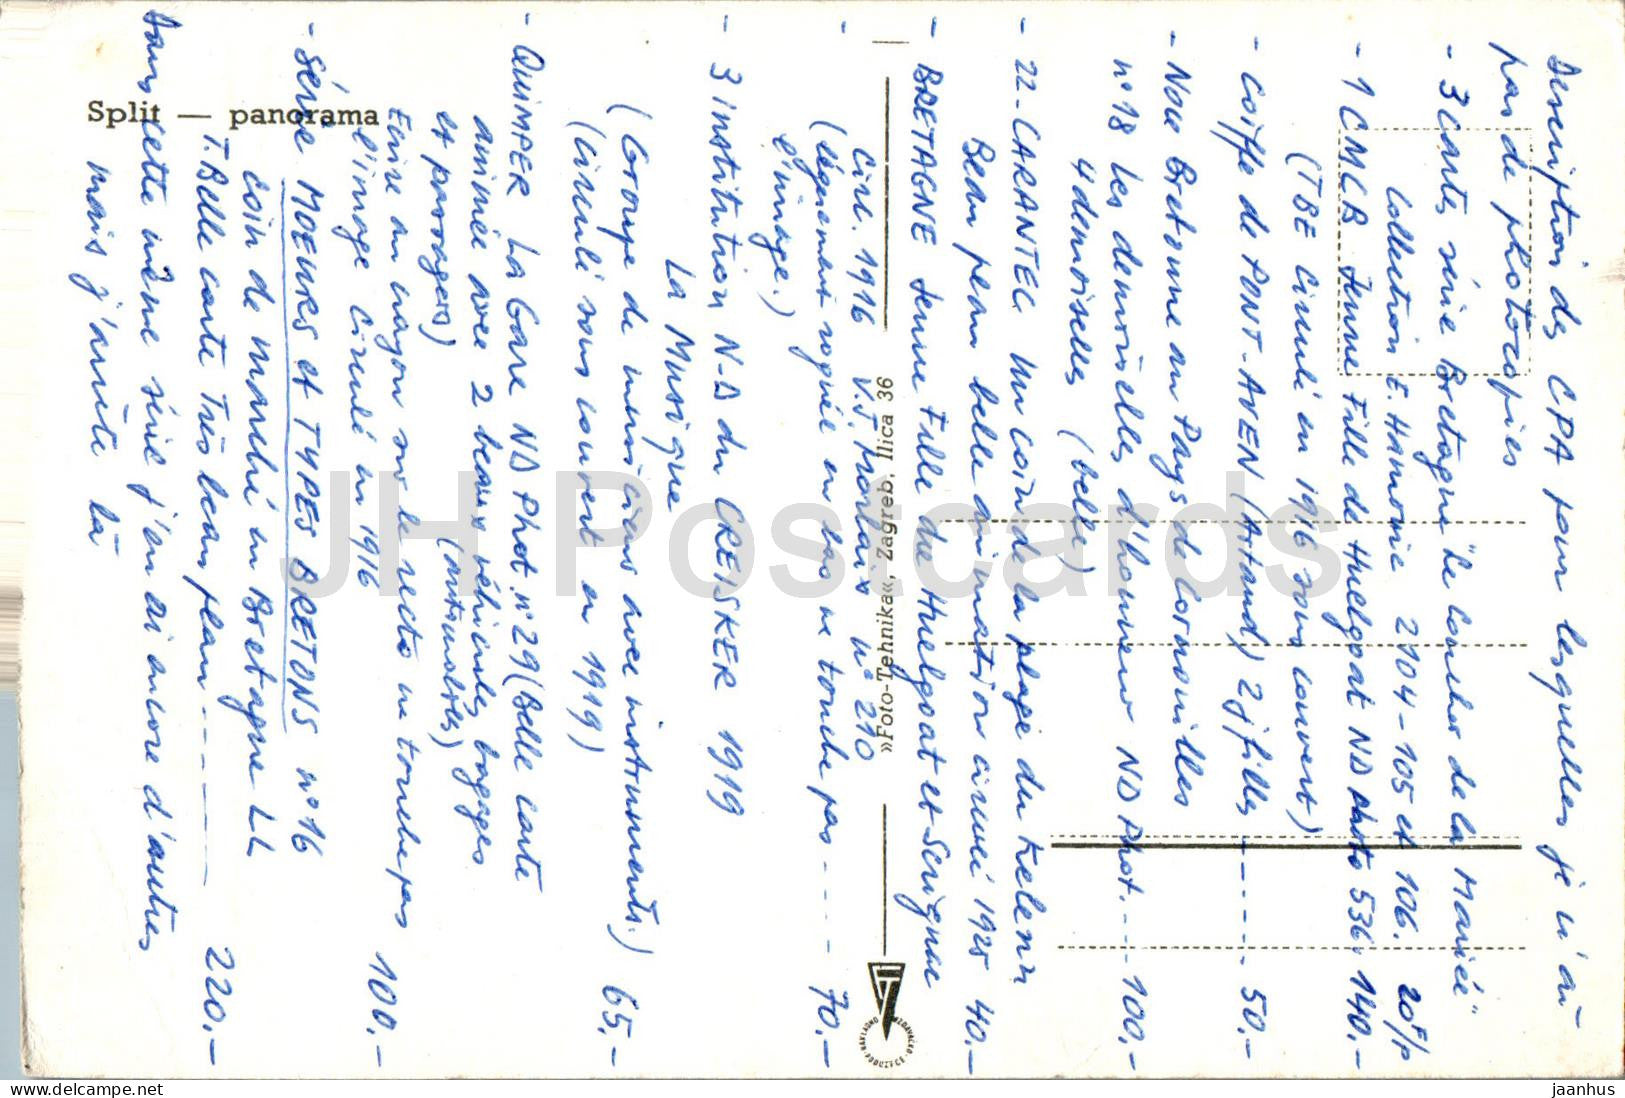 Description des CPA pour lesquelles je n'ai
pas de photocopies
- 3 Cartes série Bretagne "Le Coucher de la Mariée"
Collection E. Hamonic 2104-105 et 106. 20F/p
- 1 CMCB Jeune Fille de Huelgoat ND photo 536. 140.-
(TBE Circulé en 1916 sous couvert)
- Coiffe de PONT-AVEN (Artaud) 2 j filles ------ 50.-
- Noce Bretonne au Pays de Cornouilles
n° 18 Les demoiselles d'honneur ND Phot. --- 100.-
4 demoiselles (belle)
- 22 - CARANTEC Un Coin de la plage du Kelenn
Beau plan belle animation circulé 1925 40.-
- BRETAGNE Jeune Fille du Huelgoat et Scrignac
Circ. 1916 V.T. Morlaix n° 210
(légèrement rognée en bas ne touche pas ---- 70.-
l'image.)
-
- 3 Institution N-D du CREISKER 1919
La Musique
(Groupe de musiciens avec instruments.) 65.-
(Circulé sous couvert en 1919)
- QUIMPER La Gare ND Phot. n° 29 (Belle carte
animée avec 2 beaux véhicules, bagages
et passagers) (automobiles)
Ecrire au crayon sur le recto ne touche pas
l'image Circulé en 1916 100.-
- Série MOEURS et TYPES BRETONS n° 16
coin de marché en Bretagne LL
T. Belle carte Très beau plan ------- 220.-
Dans cette même série j'en ai encore d'autres
mais j'arrête là
Split — panorama
»Foto-Tehnika«, Zagreb, Ilica 36
JH Postcards
delcampe.net
jaanhus